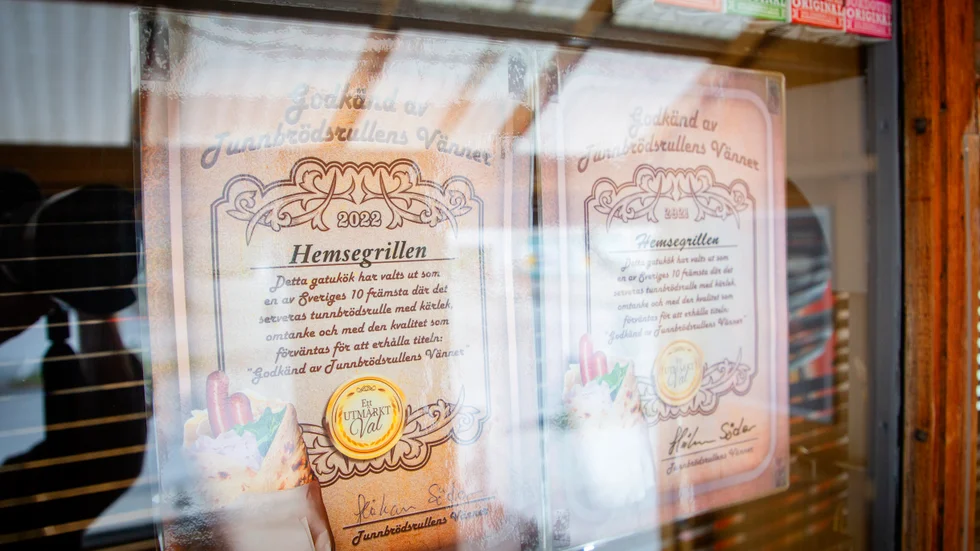 Godkänd av
Tunnbrödsrullens Vänner
2022
Hemsegrillen
Detta gatukök har valts ut som
en av Sveriges 10 främsta där det
serveras tunnbrödsrulle med kärlek,
omtanke och med den kvalitet som
förväntas för att erhålla titeln:
"Godkänd av Tunnbrödsrullens Vänner"
Ett
UTMÄRKT
Val
Håkan Söder
Tunnbrödsrullens Vänner
Godkänd av
Tunnbrödsrullens Vänner
2021
Hemsegrillen
Detta gatukök har valts ut som
en av Sveriges 10 främsta där det
serveras tunnbrödsrulle med kärlek,
omtanke och med den kvalitet som
förväntas för att erhålla titeln:
"Godkänd av Tunnbrödsrullens Vänner"
Ett
UTMÄRKT
Val
Håkan Söder
Tunnbrödsrullens Vänner
ORIGINAL
ORIGINAL